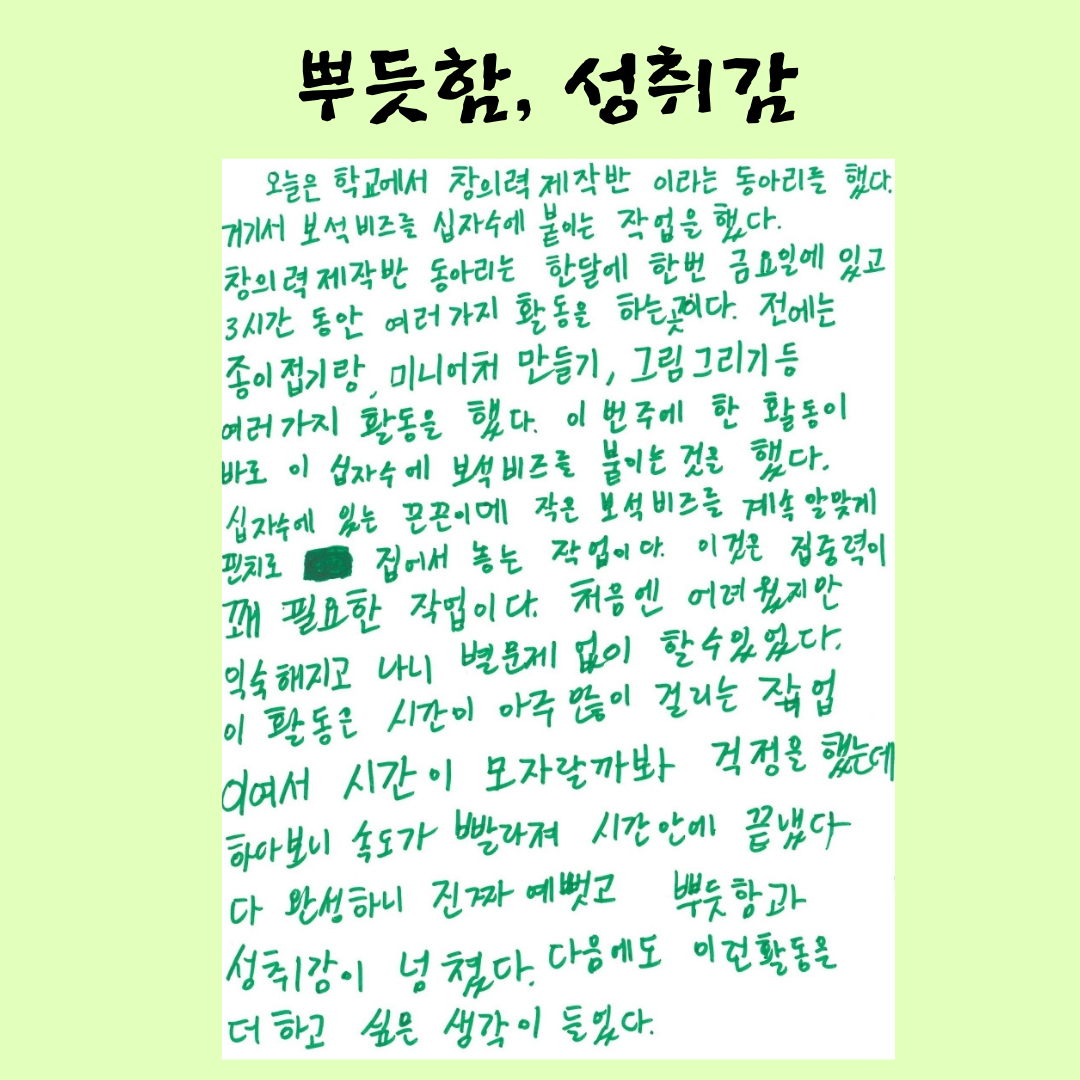 뿌듯함, 성취감
오늘은 학교에서 창의력제작반 이라는 동아리를 했다.
거기서 보석비즈를 십자수에 붙이는 작업을 했다.
창의력제작반 동아리는 한달에 한번 금요일에 있고
3시간 동안 여러가지 활동을 하는곳이다. 전에는
종이접기랑, 미니어처 만들기, 그림그리기등
여러가지 활동을 했다. 이번주에 한 활동이
바로 이 십자수에 보석비즈를 붙이는것을 했다.
십자수에 있는 끈끈이에 작은 보석비즈를 계속 알맞게
핀치로 집어서 놓는 작업이다. 이것은 집중력이
꽤 필요한 작업이다. 처음엔 어려웠지만
익숙해지고 나니 별문제 없이 할수있었다.
이 활동은 시간이 아주많이 걸리는 작업
이여서 시간이 모자랄까봐 걱정을 했는데
하아보니 속도가 빨라져 시간안에 끝냈다
다 완성하니 진짜 예뻣고 뿌듯함과
성취감이 넘쳤다. 다음에도 이런활동을
더하고 싶은 생각이 들었다.